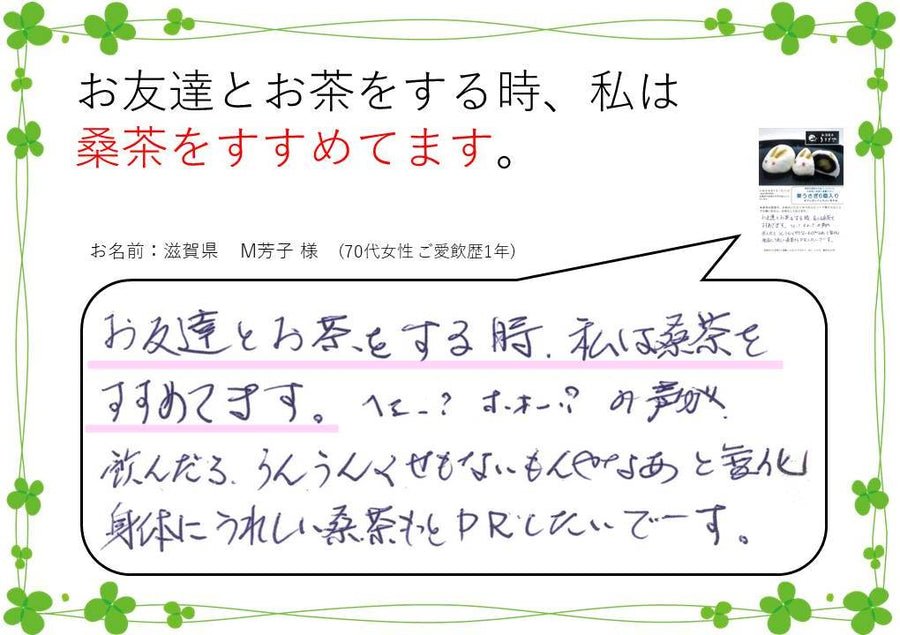 お友達とお茶をする時、私は
桑茶をすすめてます。
お名前：滋賀県　M芳子 様　(70代女性 ご愛飲歴1年)
お友達とお茶をする時、私は桑茶を
すすめてきます。へえー？ ホ、ホー!? の声が、
飲んだら、うんうんくせもないもんやなあと変化
身体にうれしい桑茶もっとPRしたいでーす。